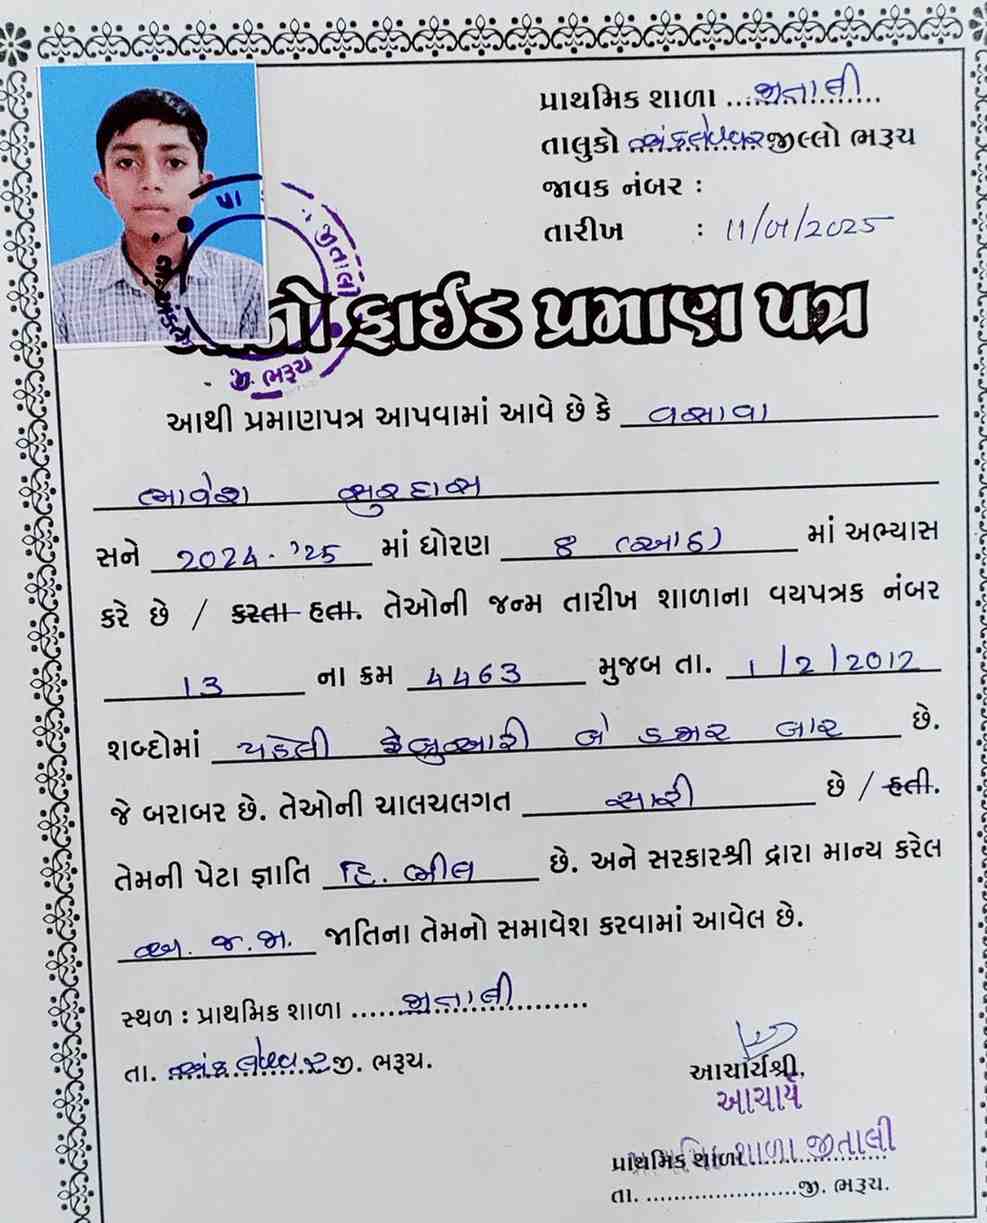 પ્રાથમિક શાળા ....જીતાલી....
તાલુકો અંકલેશ્વર જીલ્લો ભરૂચ
જાવક નંબર :
તારીખ : 11/01/2025
પ્રા
જીતાલી
જી. ભરૂચ
નો ફાઈડ પ્રમાણ પત્ર
આથી પ્રમાણપત્ર આપવામાં આવે છે કે વસાવા
ભાવેશ સુરદાસ
સને 2024-'25 માં ધોરણ 8 (આઠ) માં અભ્યાસ
કરે છે / કરતા હતા. તેઓની જન્મ તારીખ શાળાના વયપત્રક નંબર
13 ના ક્રમ 4463 મુજબ તા. 1/2/2012
શબ્દોમાં પહેલી ફેબ્રુઆરી બે હજાર બાર છે.
જે બરાબર છે. તેઓની ચાલચલગત સારી છે / હતી.
તેમની પેટા જ્ઞાતિ હિ. ભીલ છે. અને સરકારશ્રી દ્વારા માન્ય કરેલ
અ. જ. જા. જાતિના તેમનો સમાવેશ કરવામાં આવેલ છે.
સ્થળ : પ્રાથમિક શાળા ....જીતાલી....
તા. અંકલેશ્વર જી. ભરૂચ.
આચાર્યશ્રી,
આચાર્ય
પ્રાથમિક શાળા જીતાલી
તા. ........................જી. ભરૂચ.